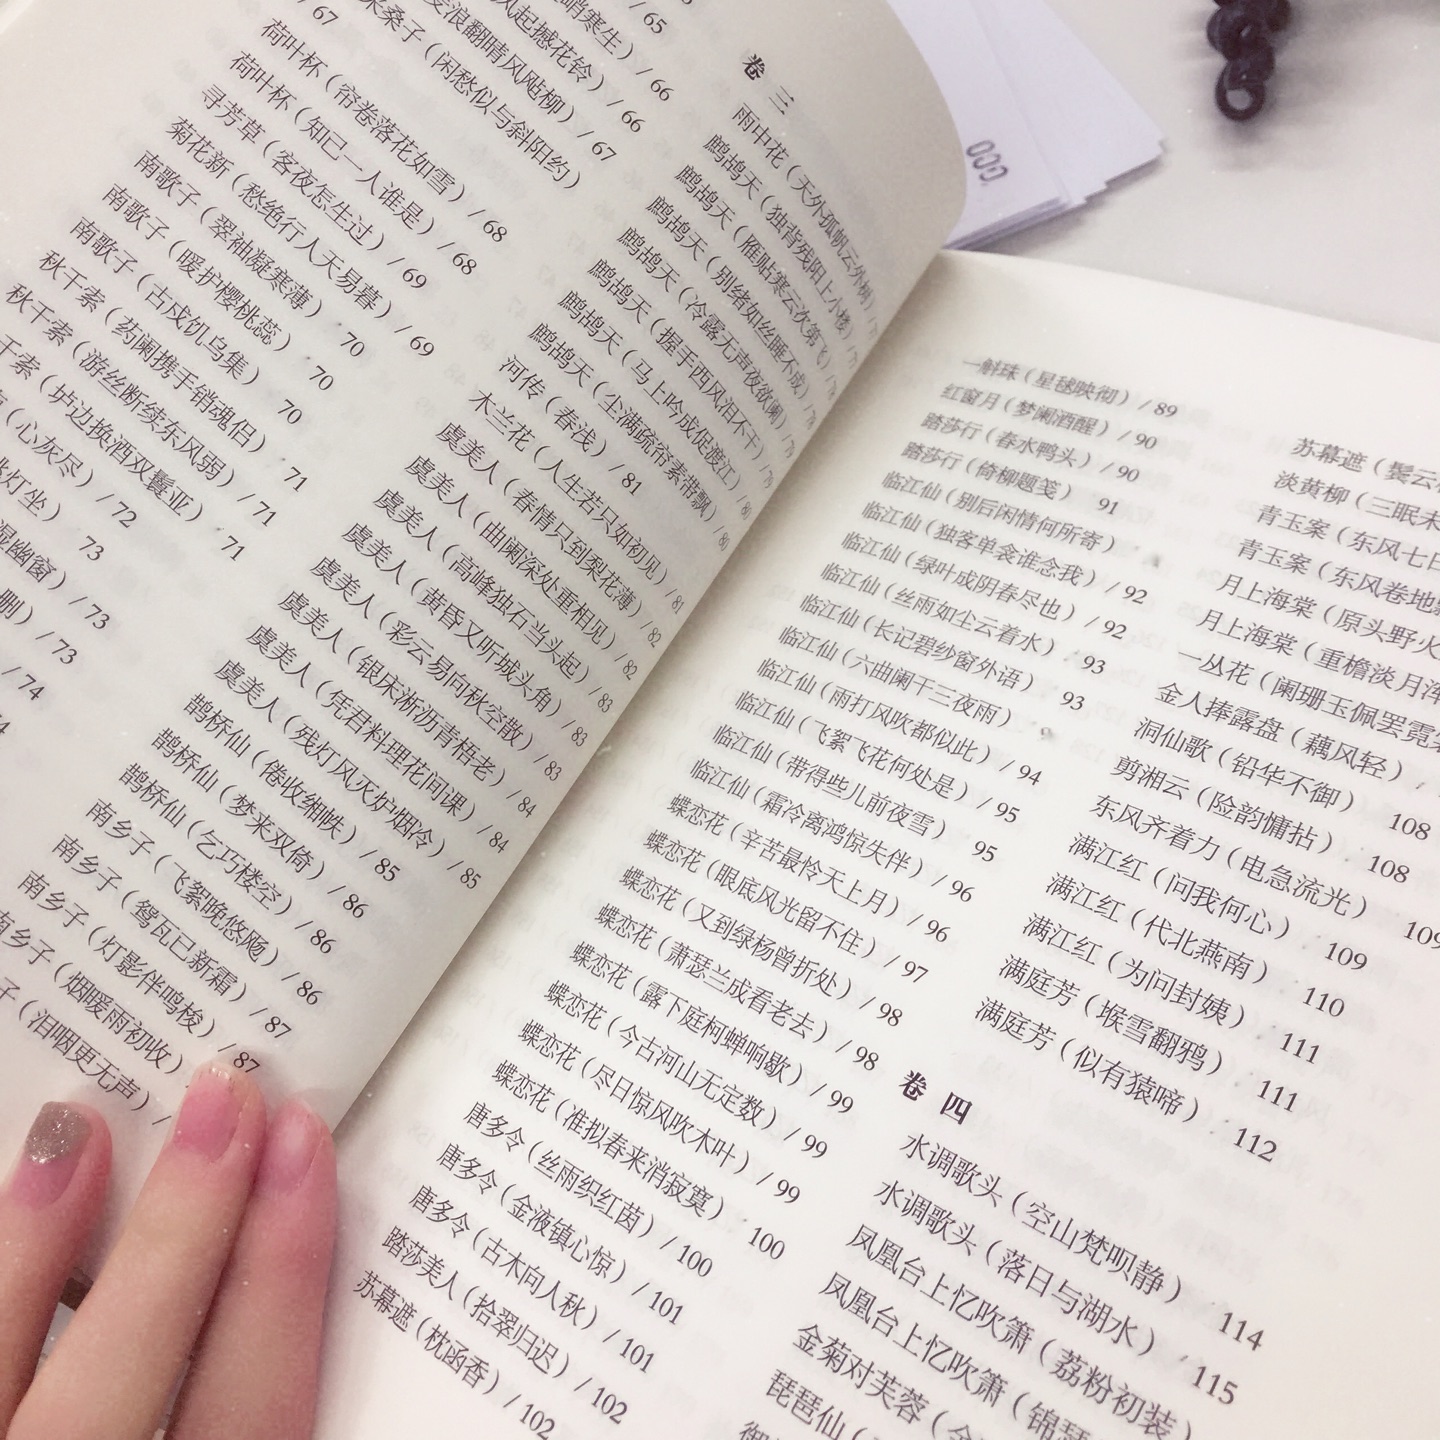 / 65
哨寒生） / 66
风起撼花铃） / 66
浪翻晴风飐柳） / 67
采桑子（闲愁似与斜阳约）
/ 67
荷叶杯（帘卷落花如雪） / 68
荷叶杯（知己一人谁是） / 68
寻芳草（客夜怎生过） / 69
菊花新（愁绝行人天易暮） / 69
南歌子（翠袖凝寒薄） 70
南歌子（暖护樱桃蕊） 70
南歌子（古戍饥乌集） 70
秋千索（药阑携手销魂侣） 71
秋千索（游丝断续东风弱） / 71
千索（垆边换酒双鬟亚） 71
（心灰尽） / 72
灯坐） 73
湿幽窗） / 73
删） / 73
/ 74
卷 三
雨中花（天外孤帆云外树）
鹧鸪天（独背残阳上小楼）
鹧鸪天（雁贴寒云次第飞） / 78
鹧鸪天（别绪如丝睡不成） / 78
鹧鸪天（冷露无声夜欲阑） / 79
鹧鸪天（握手西风泪不干） / 79
鹧鸪天（马上吟成促渡江） / 80
鹧鸪天（尘满疏帘素带飘） / 80
河传（春浅） / 81
木兰花（人生若只如初见） / 81
虞美人（春情只到梨花薄） / 82
虞美人（曲阑深处重相见） / 82
虞美人（高峰独石当头起） / 83
虞美人（黄昏又听城头角） / 83
虞美人（彩云易向秋空散） / 83
虞美人（银床淅沥青梧老） / 84
虞美人（凭君料理花间课） / 84
虞美人（残灯风灭炉烟冷） / 85
鹊桥仙（倦收缃帙） / 85
鹊桥仙（梦来双倚） / 86
鹊桥仙（乞巧楼空） / 86
南乡子（飞絮晚悠飏） / 86
南乡子（鸳瓦已新霜） / 87
南乡子（灯影伴鸣梭） / 87
南乡子（烟暖雨初收）
子（泪咽更无声） /
一斛珠（星毬映彻） / 89
红窗月（梦阑酒醒） / 90
踏莎行（春水鸭头） / 90
踏莎行（倚柳题笺） 91
临江仙（别后闲情何所寄）
临江仙（独客单衾谁念我） / 92
临江仙（绿叶成阴春尽也） / 92
临江仙（丝雨如尘云着水） 93
临江仙（长记碧纱窗外语） 93
临江仙（六曲阑干三夜雨）
临江仙（雨打风吹都似此） / 94
临江仙（飞絮飞花何处是） / 95
临江仙（带得些儿前夜雪） 95
临江仙（霜冷离鸿惊失伴） / 96
蝶恋花（辛苦最怜天上月） / 96
蝶恋花（眼底风光留不住） / 97
蝶恋花（又到绿杨曾折处） / 98
蝶恋花（萧瑟兰成看老去） / 98
蝶恋花（露下庭柯蝉响歇） / 99
蝶恋花（今古河山无定数） / 99
蝶恋花（尽日惊风吹木叶） / 99
蝶恋花（准拟春来消寂寞） 100
唐多令（丝雨织红茵） / 100
唐多令（金液镇心惊） / 101
唐多令（古木向人秋） / 101
踏莎美人（拾翠归迟） / 102
苏幕遮（枕函香） / 102
苏幕遮（鬓云
淡黄柳（三眠未
青玉案（东风七日
青玉案（东风卷地
月上海棠（原头野火
月上海棠（重檐淡月浑
一丛花（阑珊玉佩罢霓裳
金人捧露盘（藕风轻）
洞仙歌（铅华不御） 108
剪湘云（险韵慵拈） 108
东风齐着力（电急流光） 109
满江红（问我何心） 109
满江红（代北燕南） 110
满江红（为问封姨） 111
满庭芳（堠雪翻鸦） 111
满庭芳（似有猿啼） 112
卷 四
水调歌头（空山梵呗静） 114
水调歌头（落日与湖水） 115
凤凰台上忆吹箫（荔粉初装）
凤凰台上忆吹箫（锦瑟
金菊对芙蓉（金
琵琶仙（
御